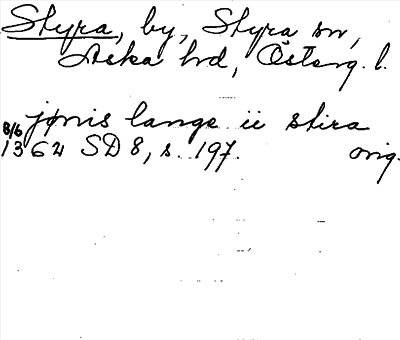 Styra, by, Styra sn,
Aska hd, Österg. l.
jønis lange ii stira
8/6 1364 SD 8, s. 197. orig.